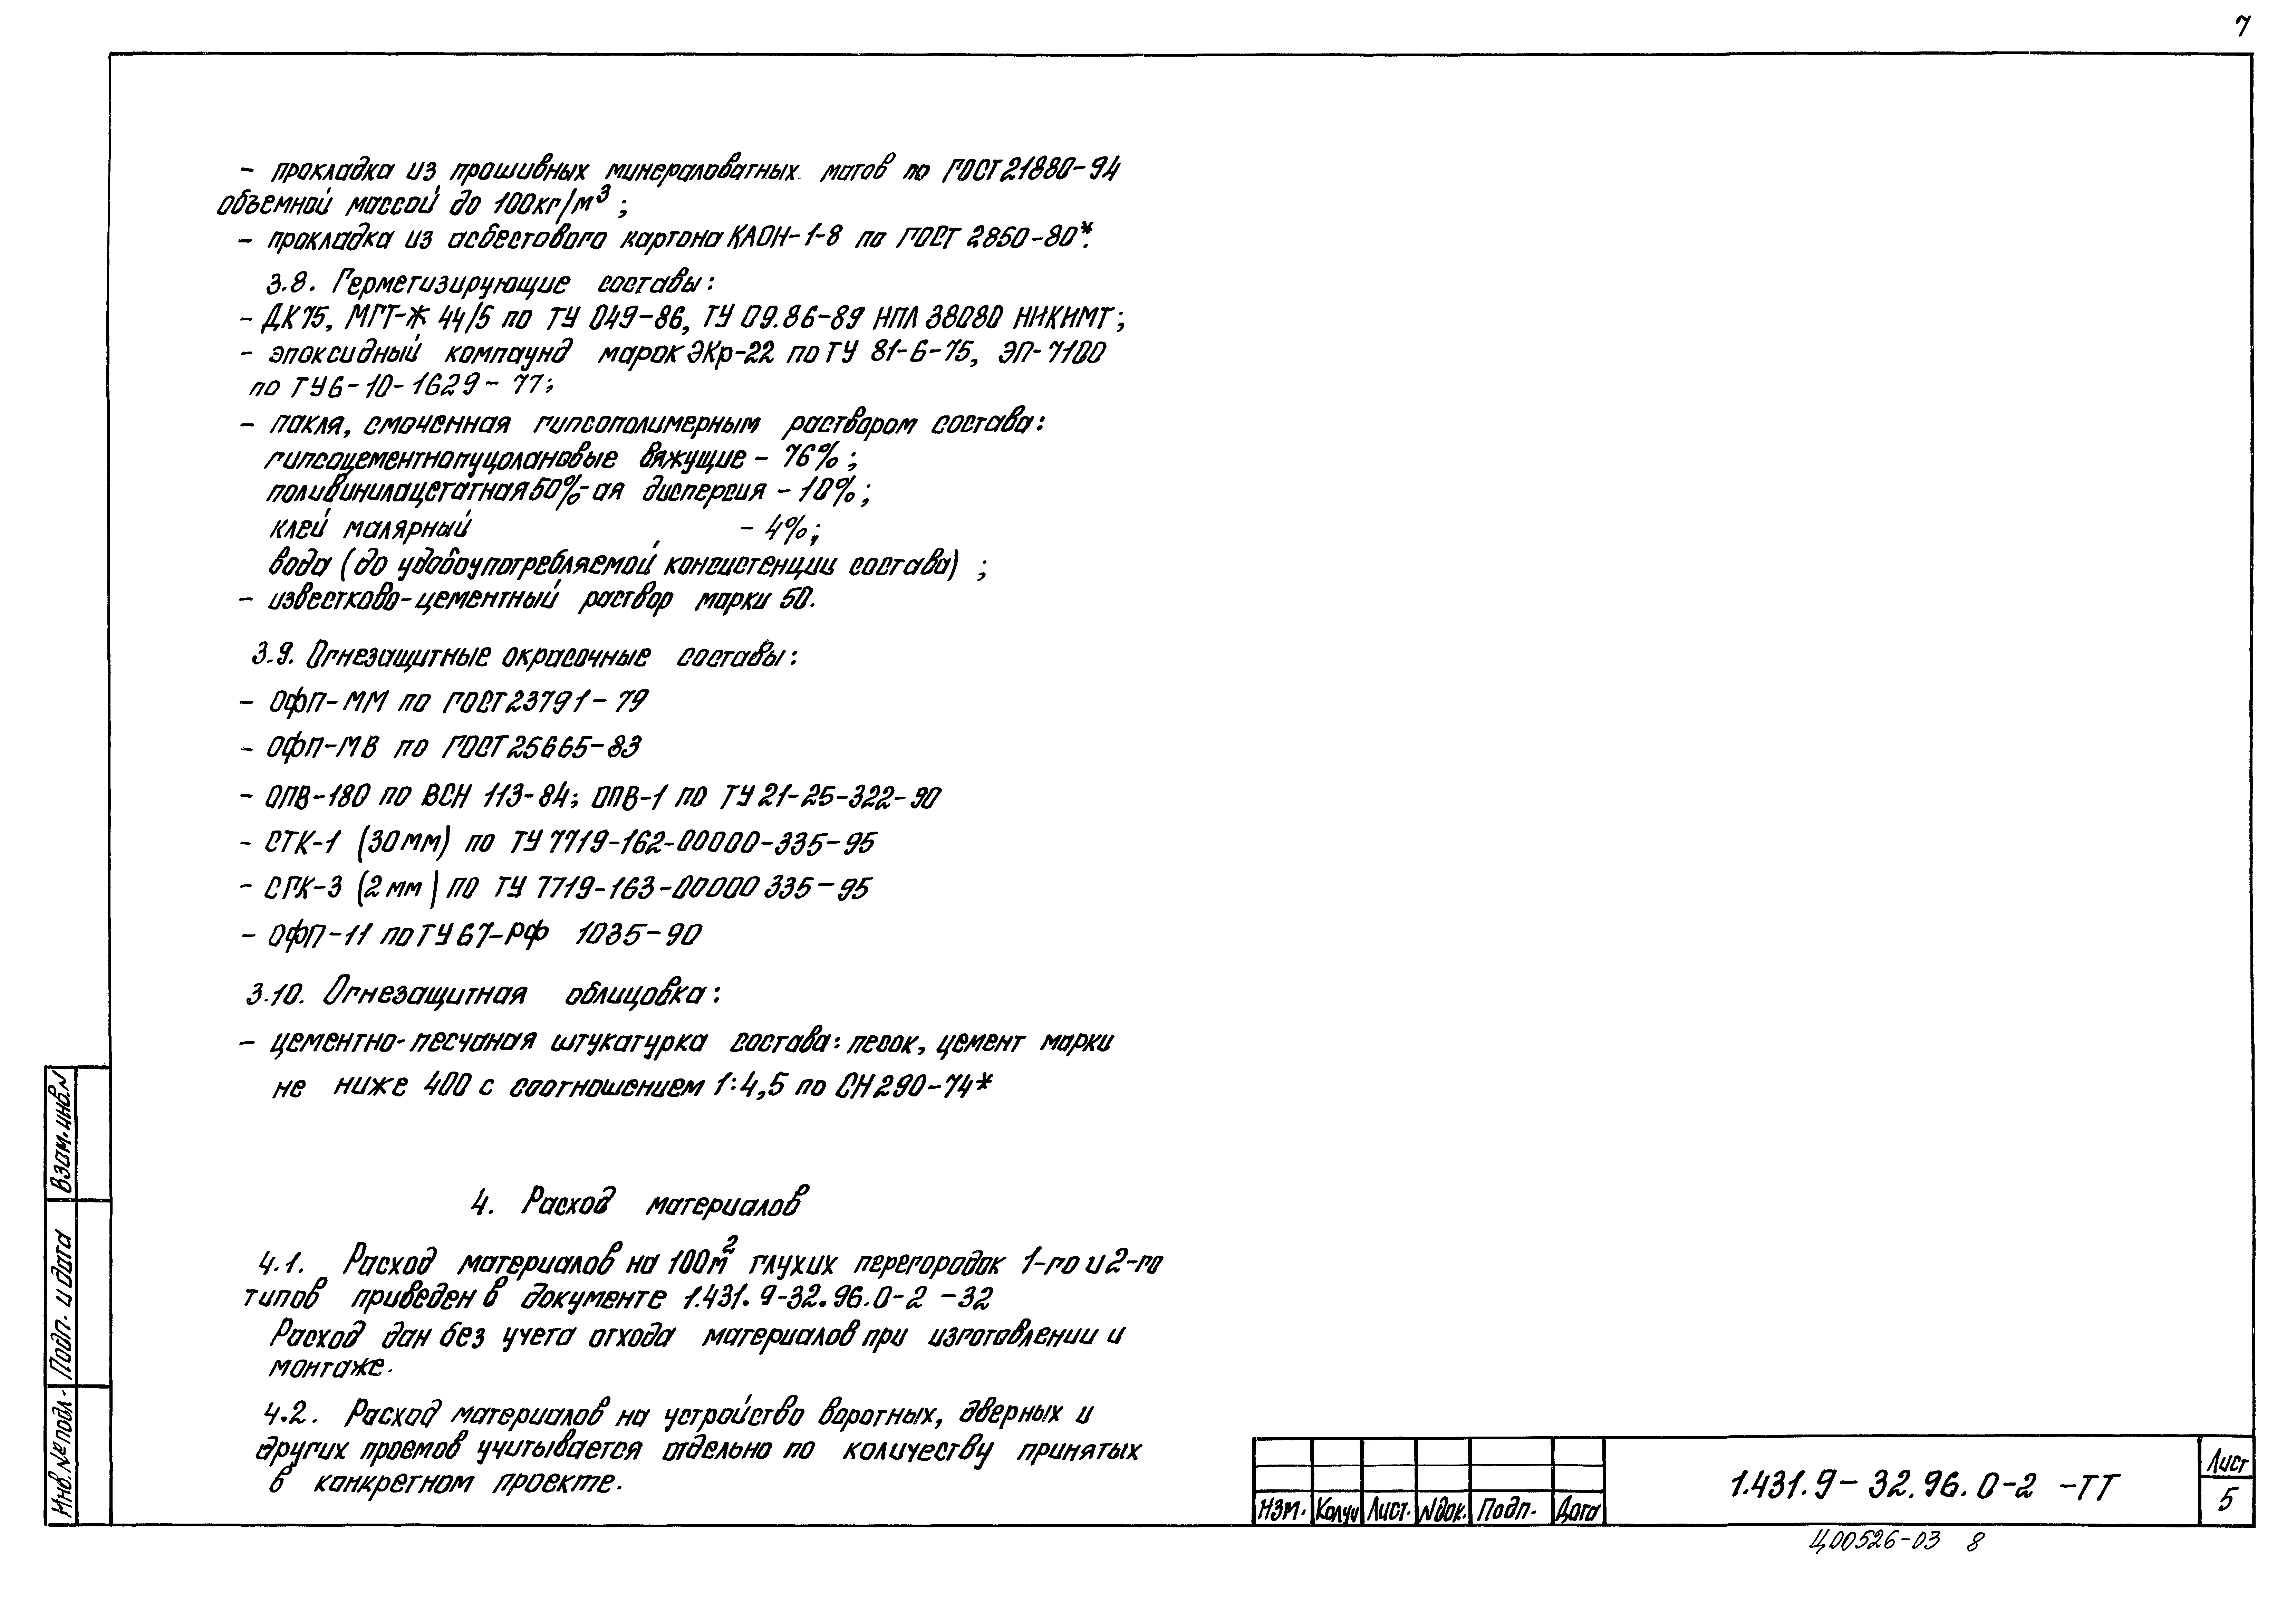 7
- прокладка из прошивных минераловатных матов по ГОСТ 21880-94
объемной массой до 100кг/м³;
- прокладка из асбестового картона КАОН-1-8 по ГОСТ 2850-80*.
3.8. Герметизирующие составы:
- ДК75, МГТ-Ж 44/5 по ТУ 049-86, ТУ 09.86-89 НПЛ 38080 НИКИМТ;
- эпоксидный компаунд марок ЭКр-22 по ТУ 81-6-75, ЭП-7100
по ТУ6-10-1629-77;
- пакля, смоченная гипсополимерным раствором состава:
гипсоцементнопуцолановые вяжущие - 76%;
поливинилацетатная 50%-ая дисперсия - 10%;
клей малярный - 4%;
вода (до удобоупотребляемой консистенции состава);
- известково-цементный раствор марки 50.
3.9. Огнезащитные окрасочные составы:
- ОФП-ММ по ГОСТ 23791-79
- ОФП-МВ по ГОСТ 25665-83
- ОПВ-180 по ВСН 113-84; ОПВ-1 по ТУ 21-25-322-90
- СТК-1 (30мм) по ТУ 7719-162-00000-335-95
- СГК-3 (2мм) по ТУ 7719-163-00000 335-95
- ОФП-11 по ТУ 67-РФ 1035-90
3.10. Огнезащитная облицовка:
- цементно-песчаная штукатурка состава: песок, цемент марки
не ниже 400 с соотношением 1:4,5 по СН 290-74*
4. Расход материалов
4.1. Расход материалов на 100м² глухих перегородок 1-го и 2-го
типов приведен в документе 1.431.9-32.96.0-2 -32
Расход дан без учета отхода материалов при изготовлении и
монтаже.
4.2. Расход материалов на устройство воротных, дверных и
других проемов учитывается отдельно по количеству принятых
в конкретном проекте.
Взам. инв.N
Подп. и дата
Инв. № подл.
Изм. Колуч Лист. Nдок. Подп. Дата
1.431.9-32.96.0-2 -ТТ
Лист
5
Ц00526-03 8